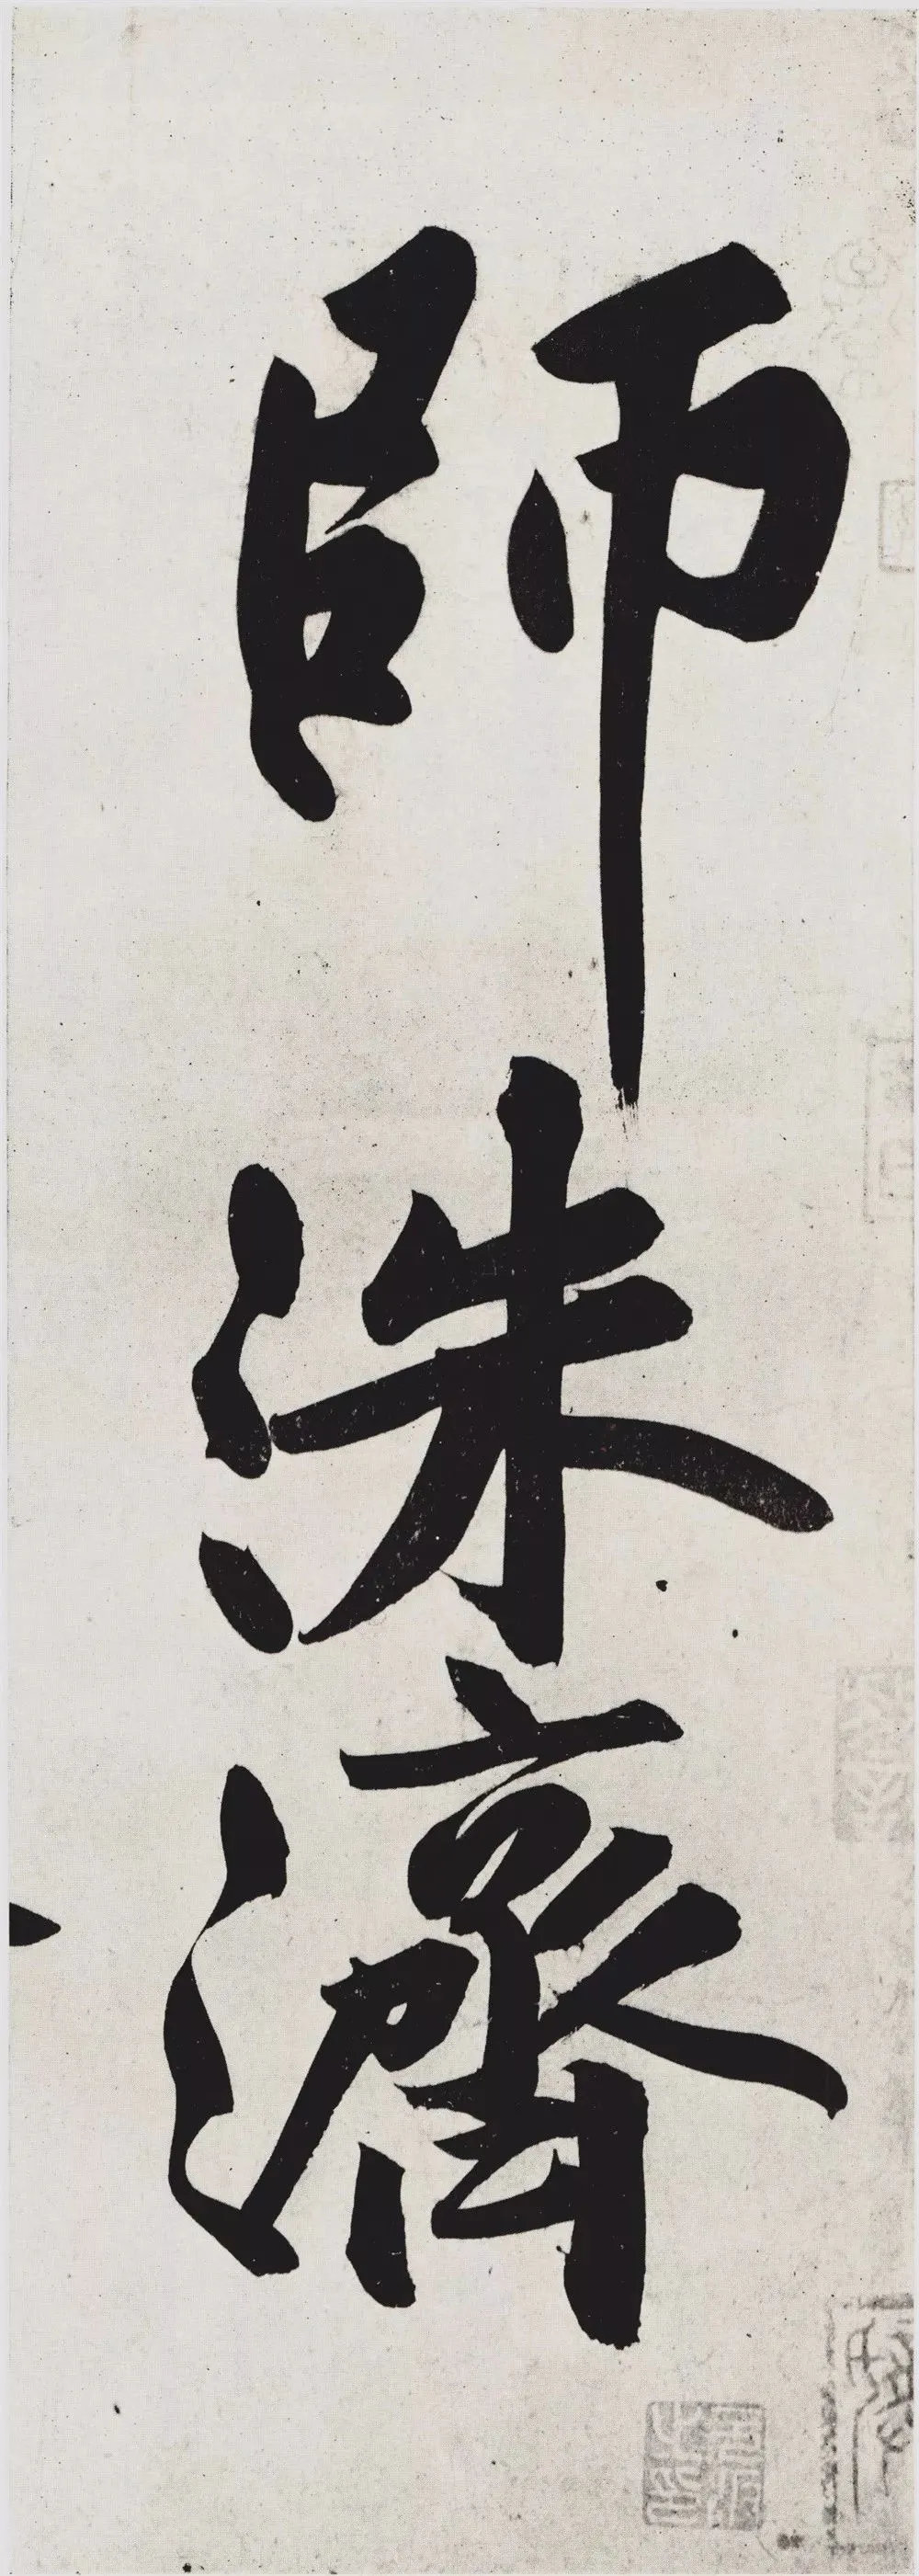 師洙濟